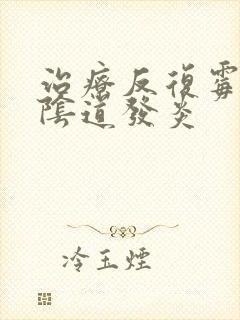 治療反復霉
陰道發炎
冷玉煙